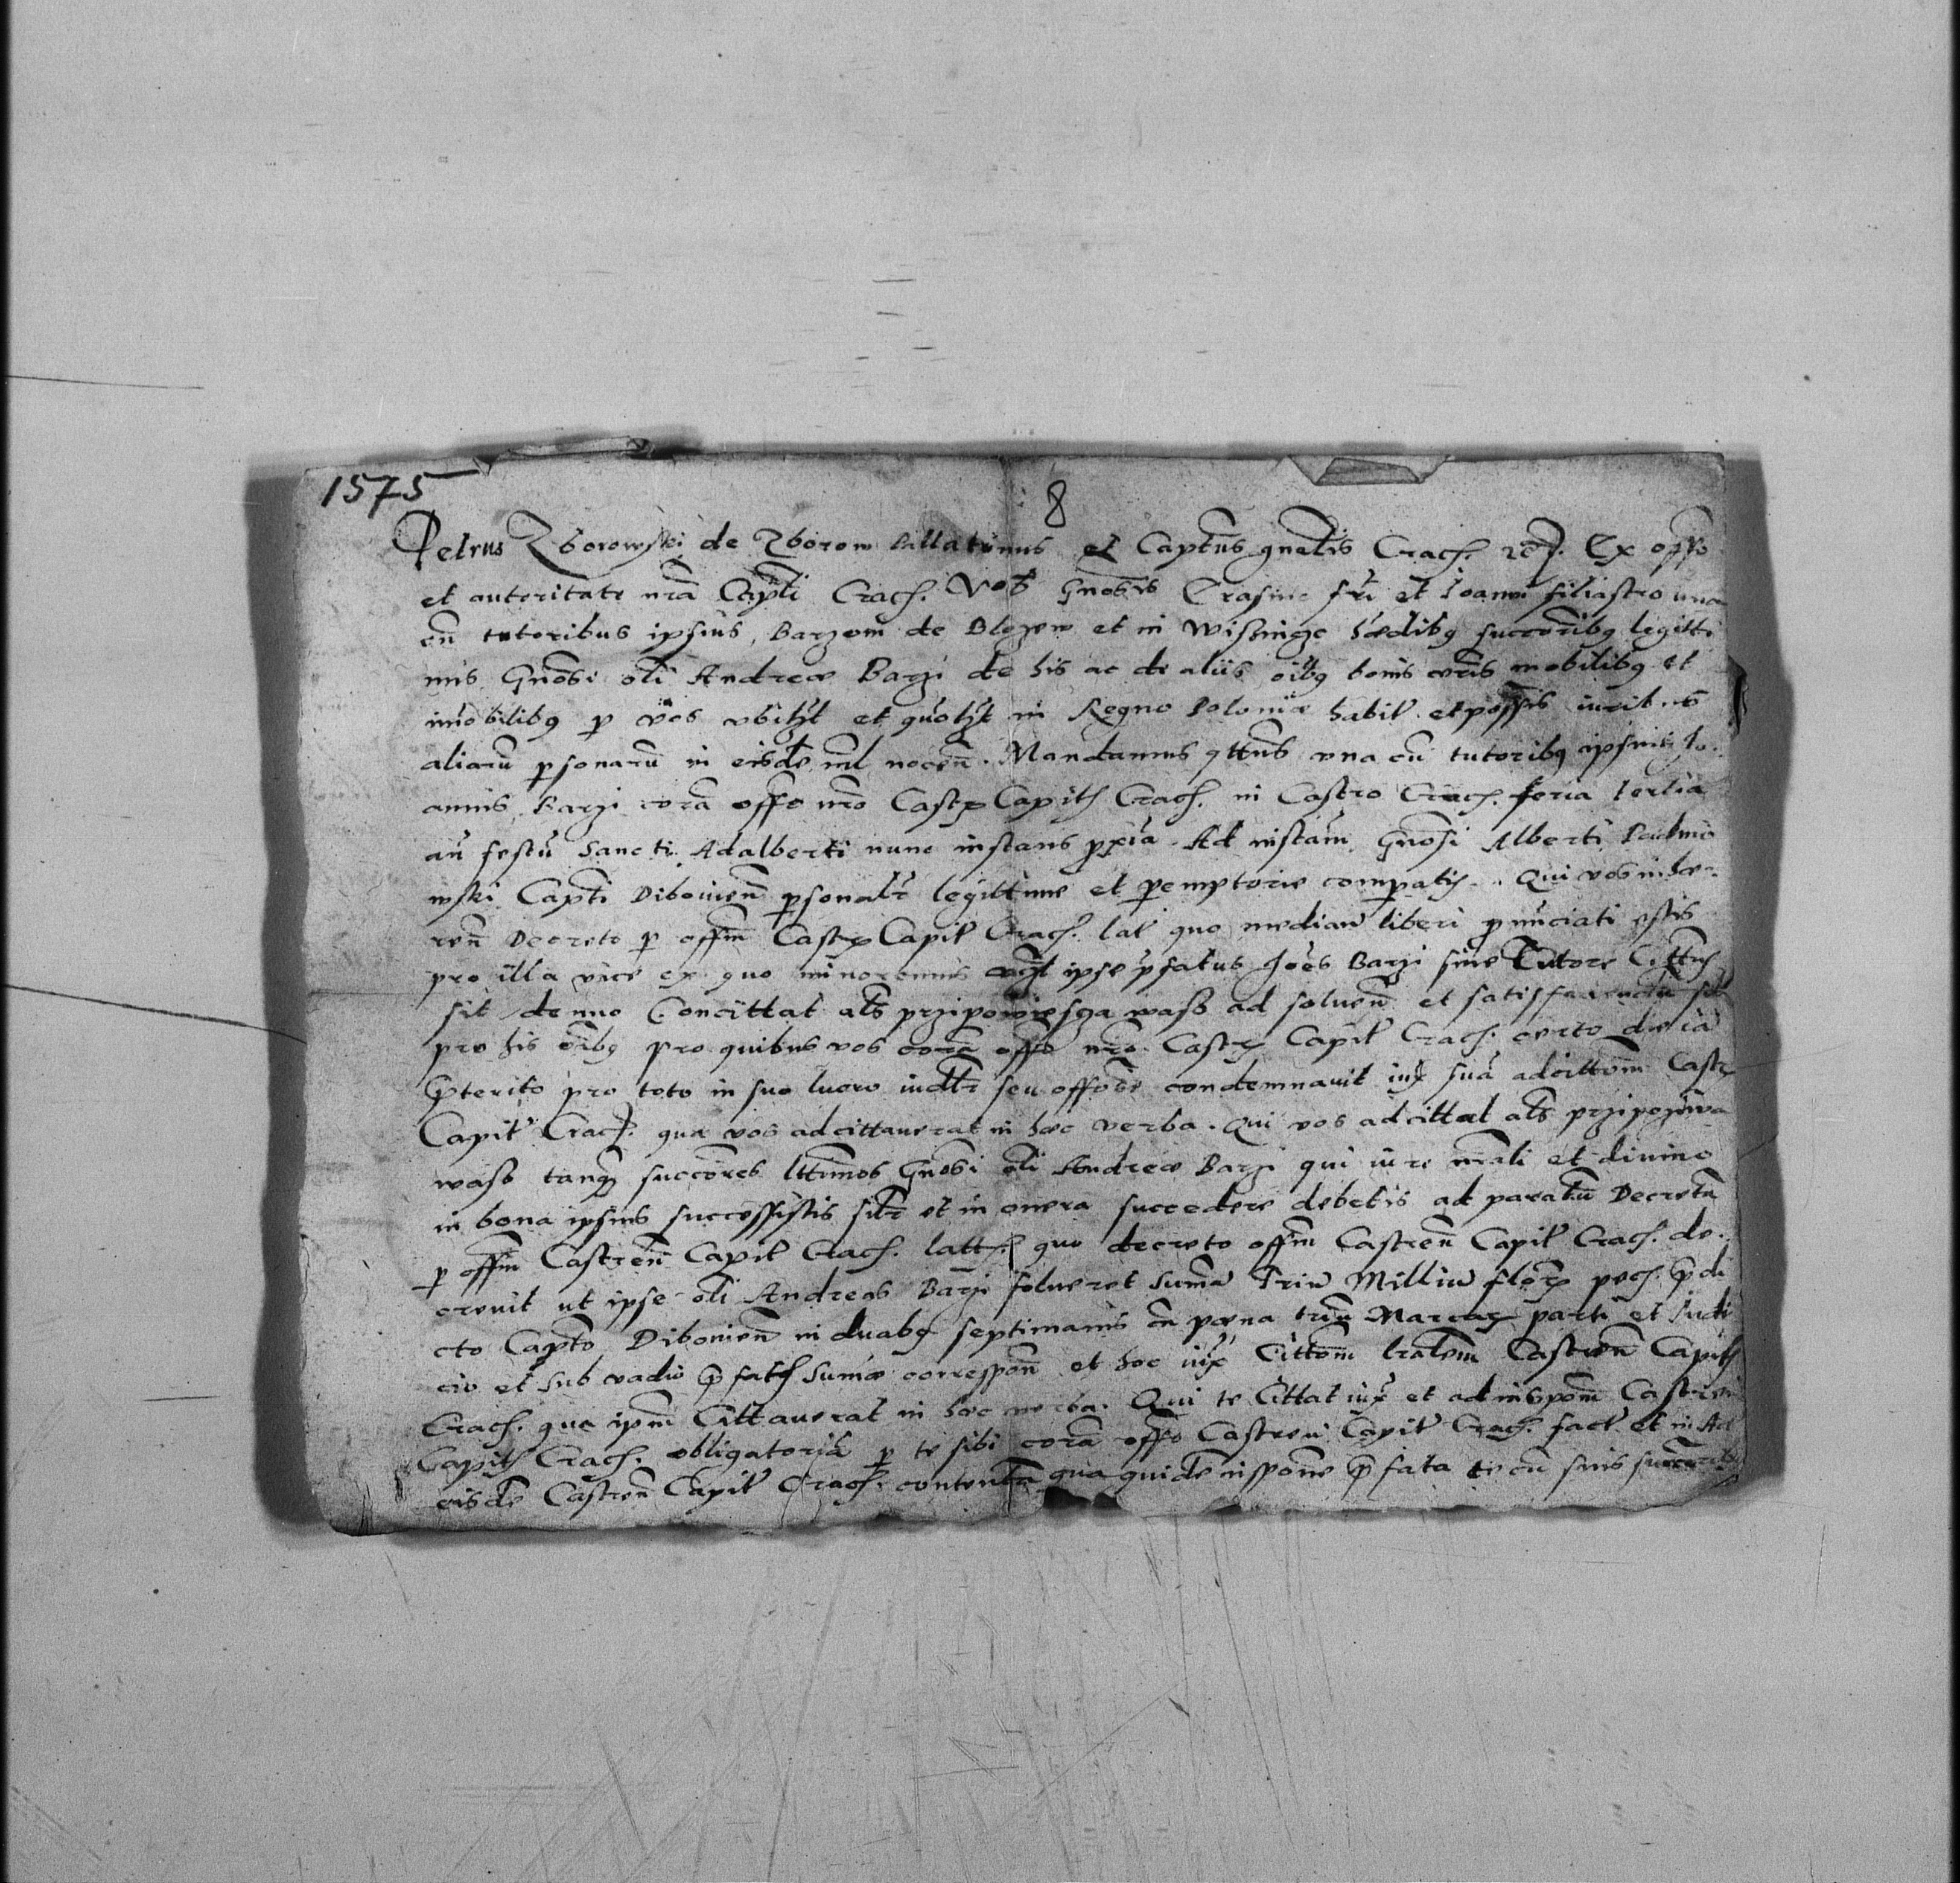 1575
8
Petrus Zborowski de Zborow Pallatinus et Captus gnalis Crac. Ex offo
et autoritate nra Capti Crac. Vos Gnosos Erasmo fri et Joanni filiastro una
cu tutoribus ipsius, Barzom de Blozew et in hædibq succoribq legitti
mis Gnosi oli Andreæ Barzi de his ac de aliis oibq bonis vris mobilibq et
imobilibq p vos vbilzt et quolzt in Regno Poloniæ habit et possis
aliaru psonaru in eisde nocen. Mandamus qttus vna cu tutoribq ipsius Jo
annis Barzi cora offo nro Castr Capit Crac. in Castro Crac. feria tertia
an festu Sancti Adalberti nunc instans pxia. Ad instam Gnosi Alberti
wski Capti Diboviен psonalr legittime et pemptorie compatis. Qui vos
ren Decreto p offm Castr Capit Crac. lat quo median liberi pnuciati estis
pro illa vice ex quo minorennis ipse pfatus Joes Barzi sine Tutore
sit denuo Concittat als przipowiescza wass ad soluen et satisfaciendu
pro his oibq pro quibus vos cora offo nro Castr Capit Crac. certo die ia
pterito pro toto in suo lucro iudlr seu offose condemnavit iux sua adcittom Castr
Capit Crac. qua vos adcittauerat in hæc verba. Qui vos adcittat als przipozywa
wass tanq succores lttimos Gnosi oli Andreæ Barzi qui iure nrali et divino
in bona ipsius successistis silr et in onera succedere debetis ad paratu Decretu
p offm Castren Capit Crac. latt quo decreto offm Castren Capit Crac. de
crevit ut ipse oli Andreas Barzi solueret suma Triu Milliu flor pec. pdi
cto Capto Dibovien in duabq septimanis cu pœna triu Marcar parti et Judi
cio et sub vadio pfatæ sumæ correspon et hoc iux Cittom lralem Castren Capit
Crac. qua ipm Cittauerat in hæc verba. Qui te Cittat iux et ad inspom Castren
Capit Crac. obligatoria p te sibi cora offo Castren Capit Crac. fact et in Act
eisde Castren Capit Crac. contenta qua quide inspone pfata te cu suis